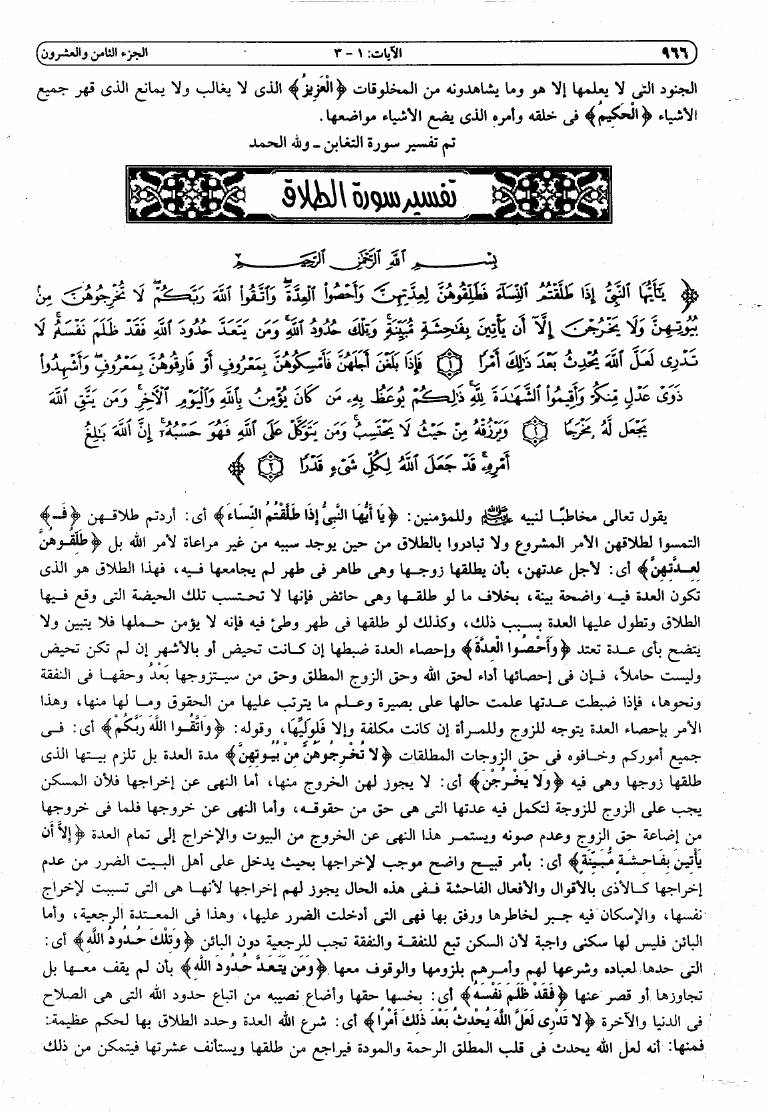 ٩٦٦ الآيات: ١ - ٣ الجزء الثامن والعشرون
الجنود التى لا يعلمها إلا هو وما يشاهدونه من المخلوقات ﴿الْعَزِيزُ﴾ الذى لا يغالب ولا يمانع الذى قهر جميع
الأشياء ﴿الْحَكِيمُ﴾ فى خلقه وأمره الذى يضع الأشياء مواضعها.
تم تفسير سورة التغابن ـ ولله الحمد
تفسير سورة الطلاق
بِسْمِ اللَّهِ الرَّحْمَٰنِ الرَّحِيمِ
﴿ يَٰٓأَيُّهَا النَّبِىُّ إِذَا طَلَّقْتُمُ النِّسَآءَ فَطَلِّقُوهُنَّ لِعِدَّتِهِنَّ وَأَحْصُوا۟ الْعِدَّةَ ۖ وَاتَّقُوا۟ اللَّهَ رَبَّكُمْ ۖ لَا تُخْرِجُوهُنَّ مِنۢ
بُيُوتِهِنَّ وَلَا يَخْرُجْنَ إِلَّآ أَن يَأْتِينَ بِفَٰحِشَةٍ مُّبَيِّنَةٍ ۚ وَتِلْكَ حُدُودُ اللَّهِ ۚ وَمَن يَتَعَدَّ حُدُودَ اللَّهِ فَقَدْ ظَلَمَ نَفْسَهُۥ ۚ لَا
تَدْرِى لَعَلَّ اللَّهَ يُحْدِثُ بَعْدَ ذَٰلِكَ أَمْرًا ١ فَإِذَا بَلَغْنَ أَجَلَهُنَّ فَأَمْسِكُوهُنَّ بِمَعْرُوفٍ أَوْ فَارِقُوهُنَّ بِمَعْرُوفٍ وَأَشْهِدُوا۟
ذَوَىْ عَدْلٍ مِّنكُمْ وَأَقِيمُوا۟ الشَّهَٰدَةَ لِلَّهِ ۚ ذَٰلِكُمْ يُوعَظُ بِهِۦ مَن كَانَ يُؤْمِنُ بِاللَّهِ وَالْيَوْمِ الْءَاخِرِ ۚ وَمَن يَتَّقِ اللَّهَ
يَجْعَل لَّهُۥ مَخْرَجًا ٢ وَيَرْزُقْهُ مِنْ حَيْثُ لَا يَحْتَسِبُ ۚ وَمَن يَتَوَكَّلْ عَلَى اللَّهِ فَهُوَ حَسْبُهُۥٓ ۚ إِنَّ اللَّهَ بَٰلِغُ
أَمْرِهِۦ ۚ قَدْ جَعَلَ اللَّهُ لِكُلِّ شَىْءٍ قَدْرًا ٣ ﴾
يقول تعالى مخاطبًا لنبيه ﷺ وللمؤمنين: ﴿يَا أَيُّهَا النَّبِىُّ إِذَا طَلَّقْتُمُ النِّسَاءَ﴾ أى: أردتم طلاقهن ﴿فَـ﴾
التمسوا لطلاقهن الأمر المشروع ولا تبادروا بالطلاق من حين يوجد سببه من غير مراعاة لأمر الله بل ﴿طَلِّقُوهُنَّ
لِعِدَّتِهِنَّ﴾ أى: لأجل عدتهن، بأن يطلقها زوجها وهى طاهر فى طهر لم يجامعها فيه، فهذا الطلاق هو الذى
تكون العدة فيه واضحة بينة، بخلاف ما لو طلقها وهى حائض فإنها لا تحتسب تلك الحيضة التى وقع فيها
الطلاق وتطول عليها العدة بسبب ذلك، وكذلك لو طلقها فى طهر وطئ فيه فإنه لا يؤمن حملها فلا يتبين ولا
يتضح بأى عدة تعتد ﴿وَأَحْصُوا الْعِدَّةَ﴾ وإحصاء العدة ضبطها إن كانت تحيض أو بالأشهر إن لم تكن تحيض
وليست حاملاً، فإن فى إحصائها أداء لحق الله وحق الزوج المطلق وحق من سيتزوجها بَعْدُ وحقها فى النفقة
ونحوها، فإذا ضبطت عدتها علمت حالها على بصيرة وعلم ما يترتب عليها من الحقوق وما لها منها، وهذا
الأمر بإحصاء العدة يتوجه للزوج وللمرأة إن كانت مكلفة وإلا فَلِوَلِيِّها، وقوله: ﴿وَاتَّقُوا اللَّهَ رَبَّكُمْ﴾ أى: فى
جميع أموركم وخافوه فى حق الزوجات المطلقات ﴿لا تُخْرِجُوهُنَّ مِنْ بُيُوتِهِنَّ﴾ مدة العدة بل تلزم بيتها الذى
طلقها زوجها وهى فيه ﴿وَلا يَخْرُجْنَ﴾ أى: لا يجوز لهن الخروج منها، أما النهى عن إخراجها فلأن المسكن
يجب على الزوج للزوجة لتكمل فيه عدتها التى هى حق من حقوقه، وأما النهى عن خروجها فلما فى خروجها
من إضاعة حق الزوج وعدم صونه ويستمر هذا النهى عن الخروج من البيوت والإخراج إلى تمام العدة ﴿إِلاَّ أَن
يَأْتِينَ بِفَاحِشَةٍ مُّبَيِّنَةٍ﴾ أى: بأمر قبيح واضح موجب لإخراجها بحيث يدخل على أهل البيت الضرر من عدم
إخراجها كالأذى بالأقوال والأفعال الفاحشة ففى هذه الحال يجوز لهم إخراجها لأنها هى التى تسببت لإخراج
نفسها، والإسكان فيه جبر لخاطرها ورفق بها فهى التى أدخلت الضرر عليها، وهذا فى المعتدة الرجعية، وأما
البائن فليس لها سكنى واجبة لأن السكن تبع للنفقة والنفقة تجب للرجعية دون البائن ﴿وَتِلْكَ حُدُودُ اللَّهِ﴾ أى:
التى حدها لعباده وشرعها لهم وأمرهم بلزومها والوقوف معها ﴿وَمَن يَتَعَدَّ حُدُودَ اللَّهِ﴾ بأن لم يقف معها بل
تجاوزها أو قصر عنها ﴿فَقَدْ ظَلَمَ نَفْسَهُ﴾ أى: بخسها حقها وأضاع نصيبه من اتباع حدود الله التى هى الصلاح
فى الدنيا والآخرة ﴿لا تَدْرِى لَعَلَّ اللَّهَ يُحْدِثُ بَعْدَ ذَلِكَ أَمْرًا﴾ أى: شرع الله العدة وحدد الطلاق بها لحكم عظيمة:
فمنها: أنه لعل الله يحدث فى قلب المطلق الرحمة والمودة فيراجع من طلقها ويستأنف عشرتها فيتمكن من ذلك